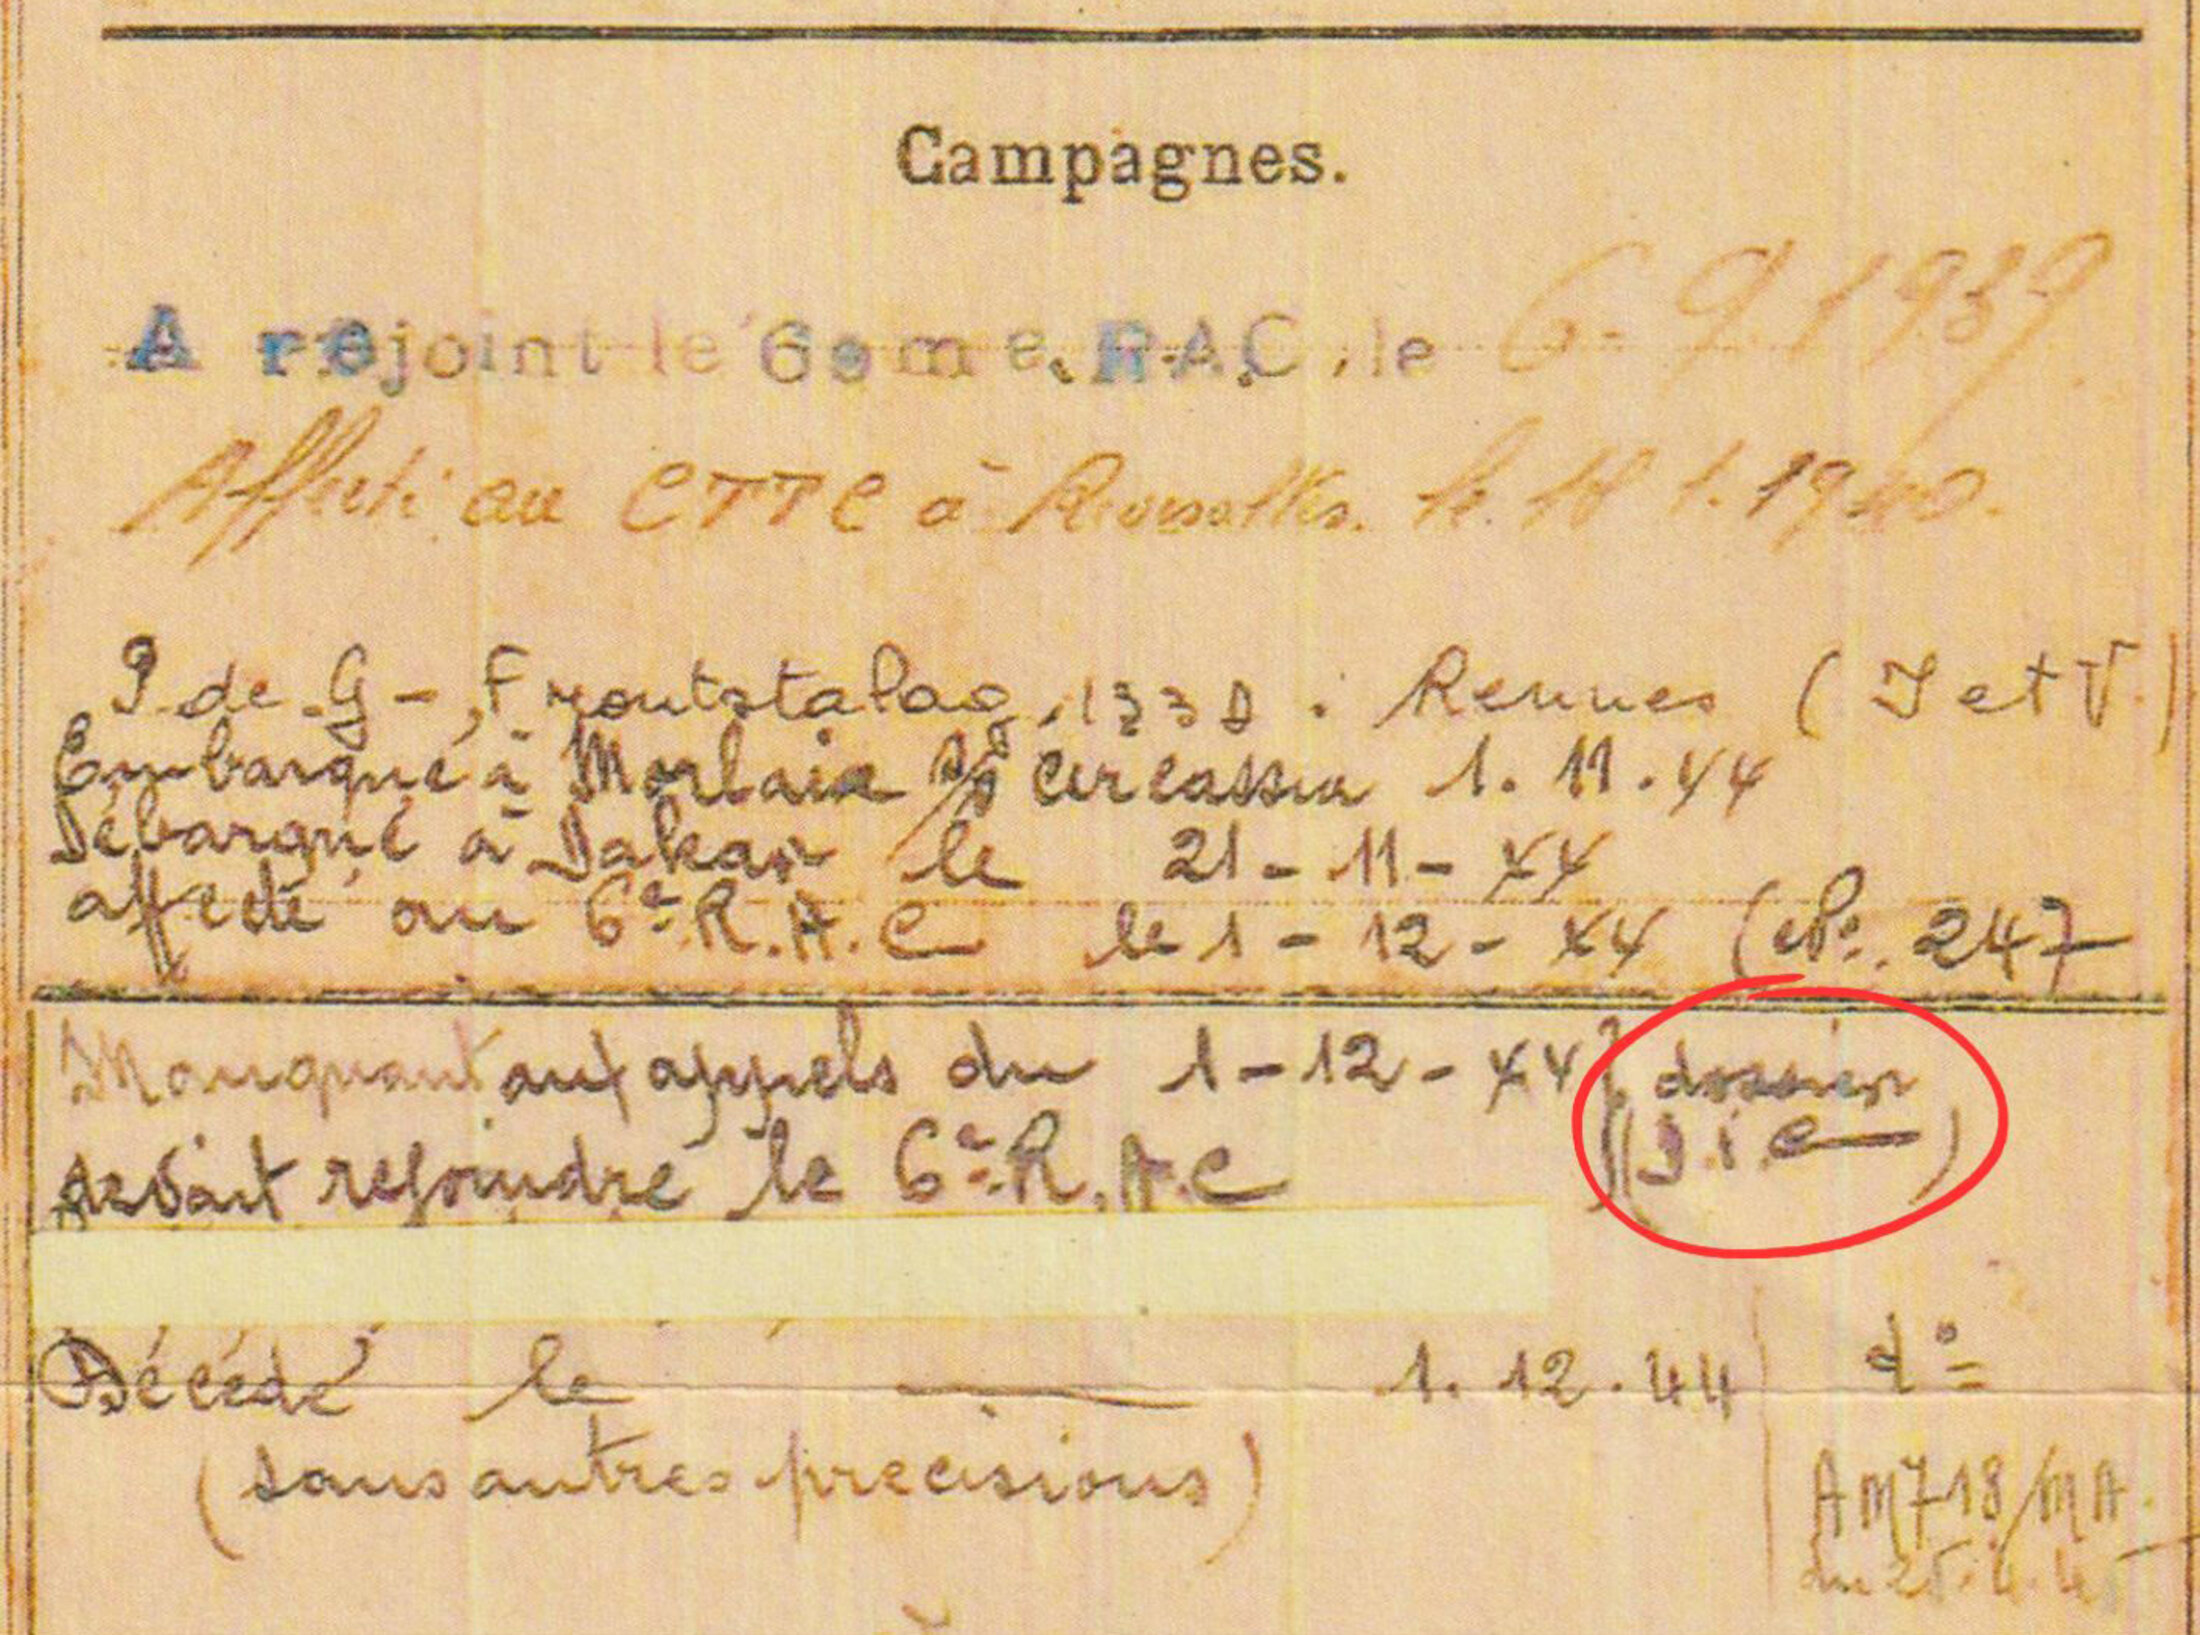 Campagnes.
A rejoint le 6eme. RAC. le 6. 9 1939
Affecté au CTTC à le 18 1. 1940.
P. de G - Frontstalag 133 Rennes (I et V.)
Embarqué à Morlaix s/s Circassia 1. 11. 44
Débarqué à Dakar le 21 - 11 - 44
affecté au 6e R.A.C le 1 - 12 - 44 247
Manquant aux appels du 1 - 12 - 44 dossier
devait rejoindre le 6e R.A.C
Décédé le 1. 12. 44 do
(sans autres precisions)
AM 718/MA
du 25. 4. 45